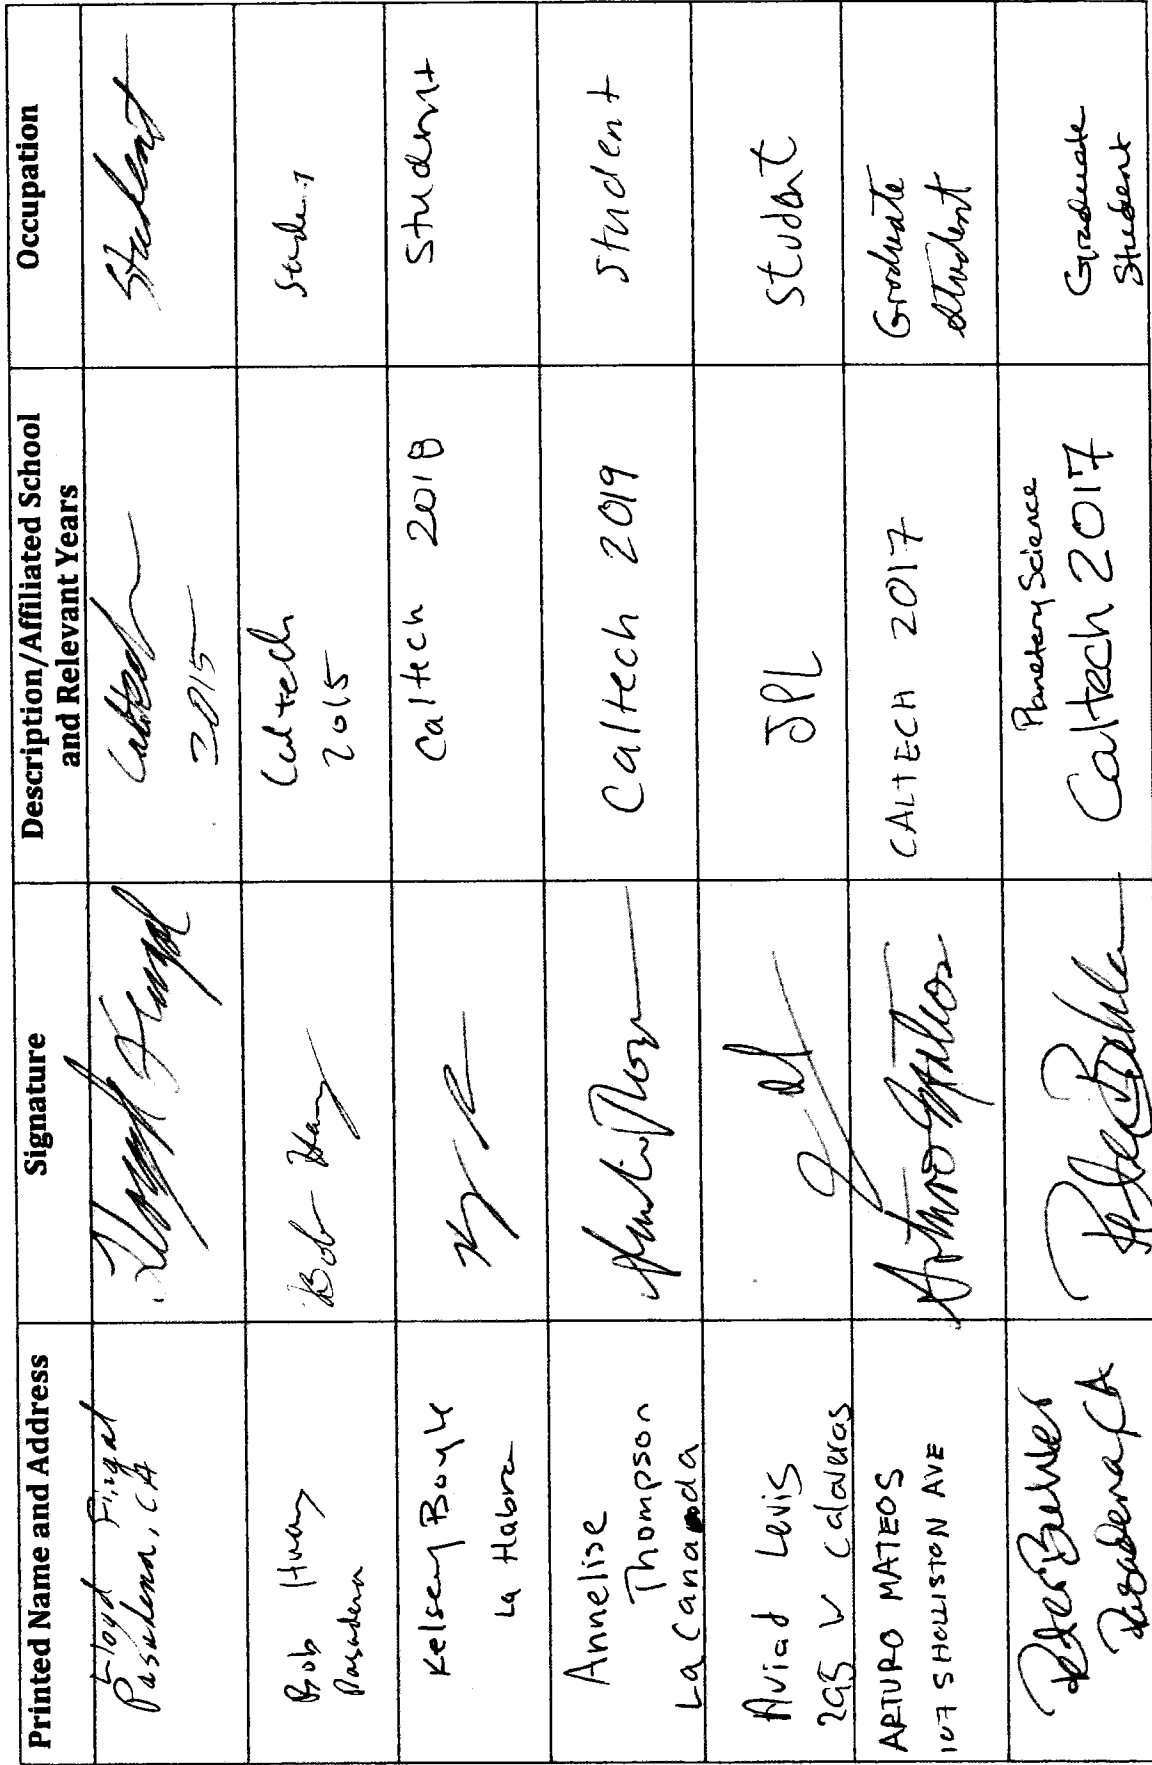 Printed Name and Address
Signature
Description/Affiliated School
and Relevant Years
Occupation
Floyd Fingal
Pasadena, CA
Caltech
2015
Student
Bob Huang
Pasadena
Bob Huang
Caltech
2015
Student
Kelsey Boyle
La Habra
Caltech 2018
Student
Annelise
Thompson
La Canada
Caltech 2019
student
Aviad Levis
295 W Calaveras
JPL
student
ARTURO MATEOS
107 S HOLLISTON AVE
Arturo Mateos
CALTECH 2017
Graduate
student
Peter Buhler
Pasadena, CA
Peter Buhler
Planetary Science
Caltech 2017
Graduate
Student